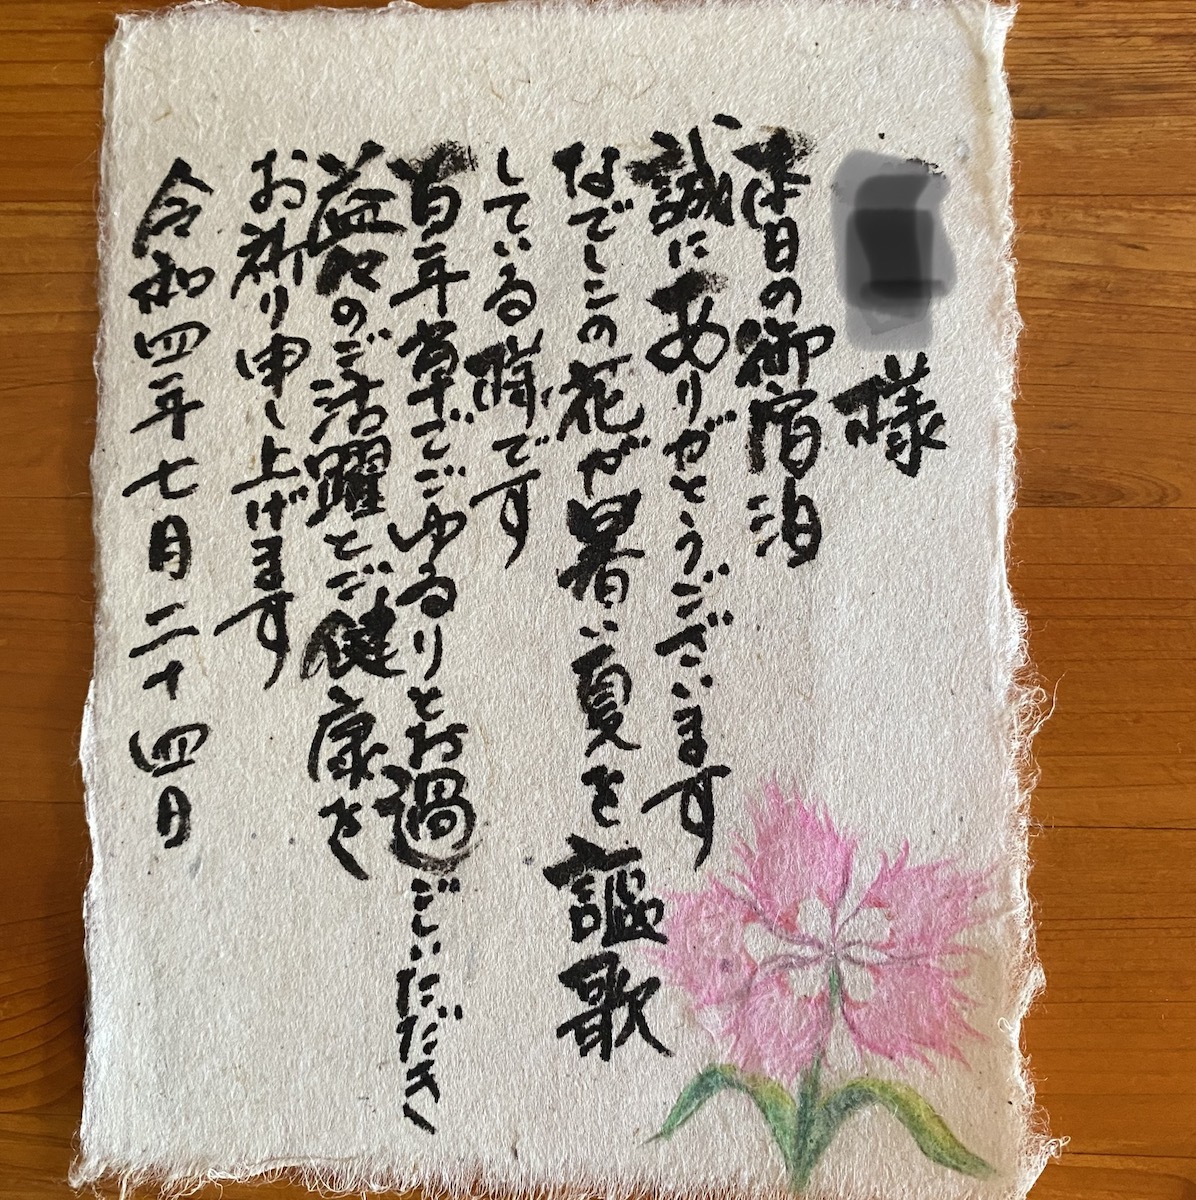 様
本日の御宿泊
誠にありがとうございます
なでしこの花が暑い夏を謳歌
している様です
百年草でごゆるりとお過ごしいただき
益々のご活躍とご健康を
お祈り申し上げます
令和四年七月二十四日